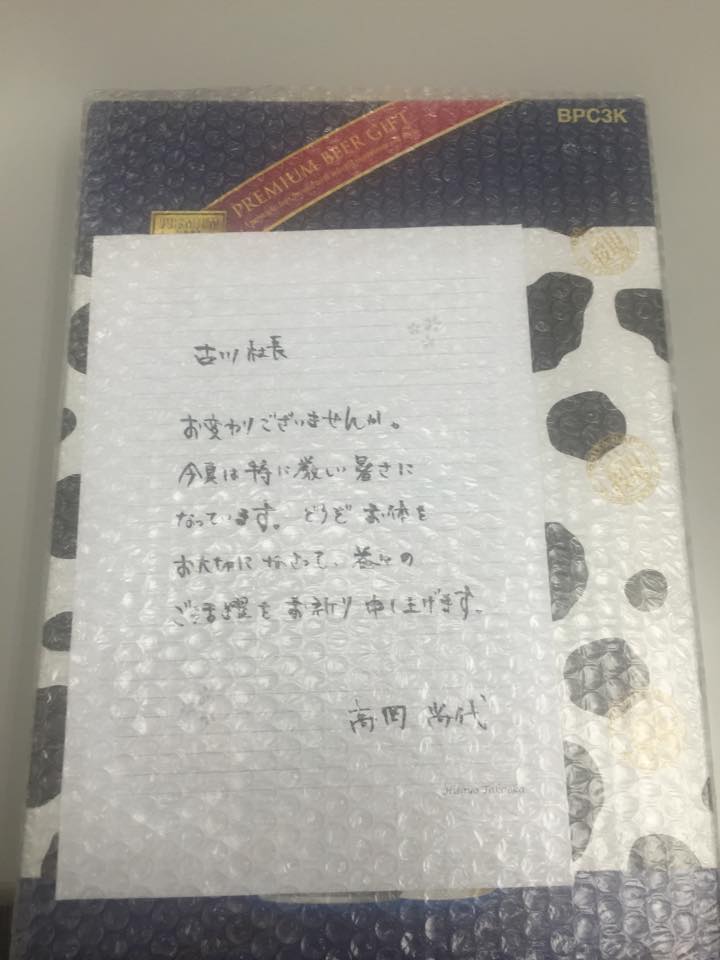 BPC3K
PREMIUM BEER GIFT
古川社長
お変わりございませんか。
今夏は特に厳しい暑さに
なっています。どうぞお体を
お大切になさって、益々の
ご活躍をお祈り申し上げます。
高岡 尚代
Hisayo Takaoka